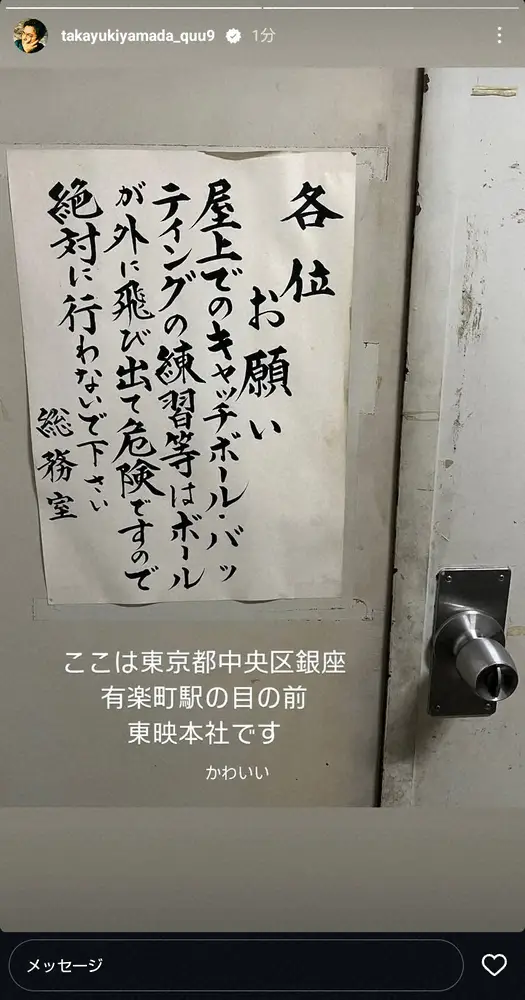 takayukiyamada_quu9 1分
各位
お願い
屋上でのキャッチボール・バッ
ティングの練習等はボール
が外に飛び出て危険ですので
絶対に行わないで下さい
総務室
ここは東京都中央区銀座
有楽町駅の目の前
東映本社です
かわいい
メッセージ